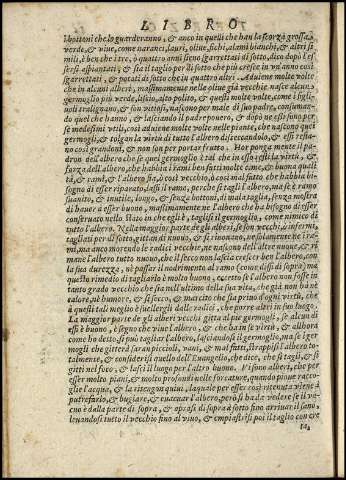 LIBRO
i bottoni che lo guarderanno, & anco in quelli che han la scorza grossa,
verde, & viue, come naranci, lauri, oliue, fichi, alami bianchi, & altri si
mili, è ben che i tre, ò quattro anni sieno sgarrettati di sotto, dico dopò l'es
sersi aspiantati, & sia il taglio per di sotto che più cresce in vn'anno così
sgarrettati, & potati di sotto che in quattro altri. Aduiene molte volte
che in alcuni alberi, massimamente nelle oliue già vecchie nasce alcun
germoglio più verde, liscio, alto polito, & questi molte volte, come i figli
uoli tralignano, & son vitiosi, nascono per male di suo padre, consuman
do quel che hanno, & lasciando il padre pouero, & dopò ne essi sono per
se medesimi vtili, così aduiene molte volte nelle piante, che nascono quei
germogli, & tolgon la virtù di tutto l'albero diseccandolo, & essi resta-
no così grandoni, & non son per portar frutto. Hor ponga mente il pa-
dron dell'albero che se quel germoglio è tal che in esso resti la virtù, &
forza dell'albero, che habbia i rami ben fatti molte cime, & buona quali
tà, & rami, & l'albero sia, ò così vecchio, ò così mal fatto che habbia bi-
sogno di esser riparato, lassi il ramo, perche si tagli l'albero, ma se è ramo
suanito, & inutile, lungo, & senza bottoni di mala taglia, senza mostra
di hauer a esser buono, massimamente ne l'albero che ha bisogno di esser
conseruato nello stato in che egli è, taglisi il germoglio, come nimico di
tutto l'albero. Nella maggior parte de gli alberi, se son vecchi, ò infermi,
tagliati per di sotto, gittan di nuouo, & si rinouano, ne solamente ne i ra-
mi, ma anco mortedo le radici vecchie, ne nascono dell'altre nuoue, & ri
mane l'albero tutto nuouo, che il secco non lascia crescer ben l'albero, con
la sua durezza, nò passar il nodrimento al ramo (come dissi di sopra) ma
questo rimedio di tagliarlo è molto buono, eccetto se l'albero non fosse in
tanto grado vecchio che sia nell'ultimo della sua vita, che già non ha ne
calore, nè humore, & si secco, & marcito che sia priuo d'ogni virtù, che
à questi tali meglio è suellergli dalle radici, che porre altri in suo luogo.
La maggior parte de gli alberi vecchi gitta par germogli, se alcun di
essi è buono, è segno che viue l'albero, & che han in se virtù, & allhora
come ho detto, si può tagliar l'albero, lasciandosi il germoglio, ma se i ger
mogli che gitterà saran piccioli, vani, & mal fatti, strappisi l'albero to-
talmente, & consideresi quello dell'Euangelio, che dice, che si tagli, & si
gitti nel foco, & lasci il luogo per l'altro buono. Vi sono alberi, che per
esser molto piani, & molto profondi nelle forcature, quando pioue racco-
glie l'acqua, & la ritengon quiui, laquale per esser così ritenuta viene à
putrefarlo, & bugiare, & euacuar l'albero, però si ha da vedere se il va-
cuo è dalla parte di sopra, & aprasi di sopra à sotto fino arriuar il sano,
leuandosi tutto il vecchio fino al viuo, & empiastrisi poi il taglio con cre
ta,